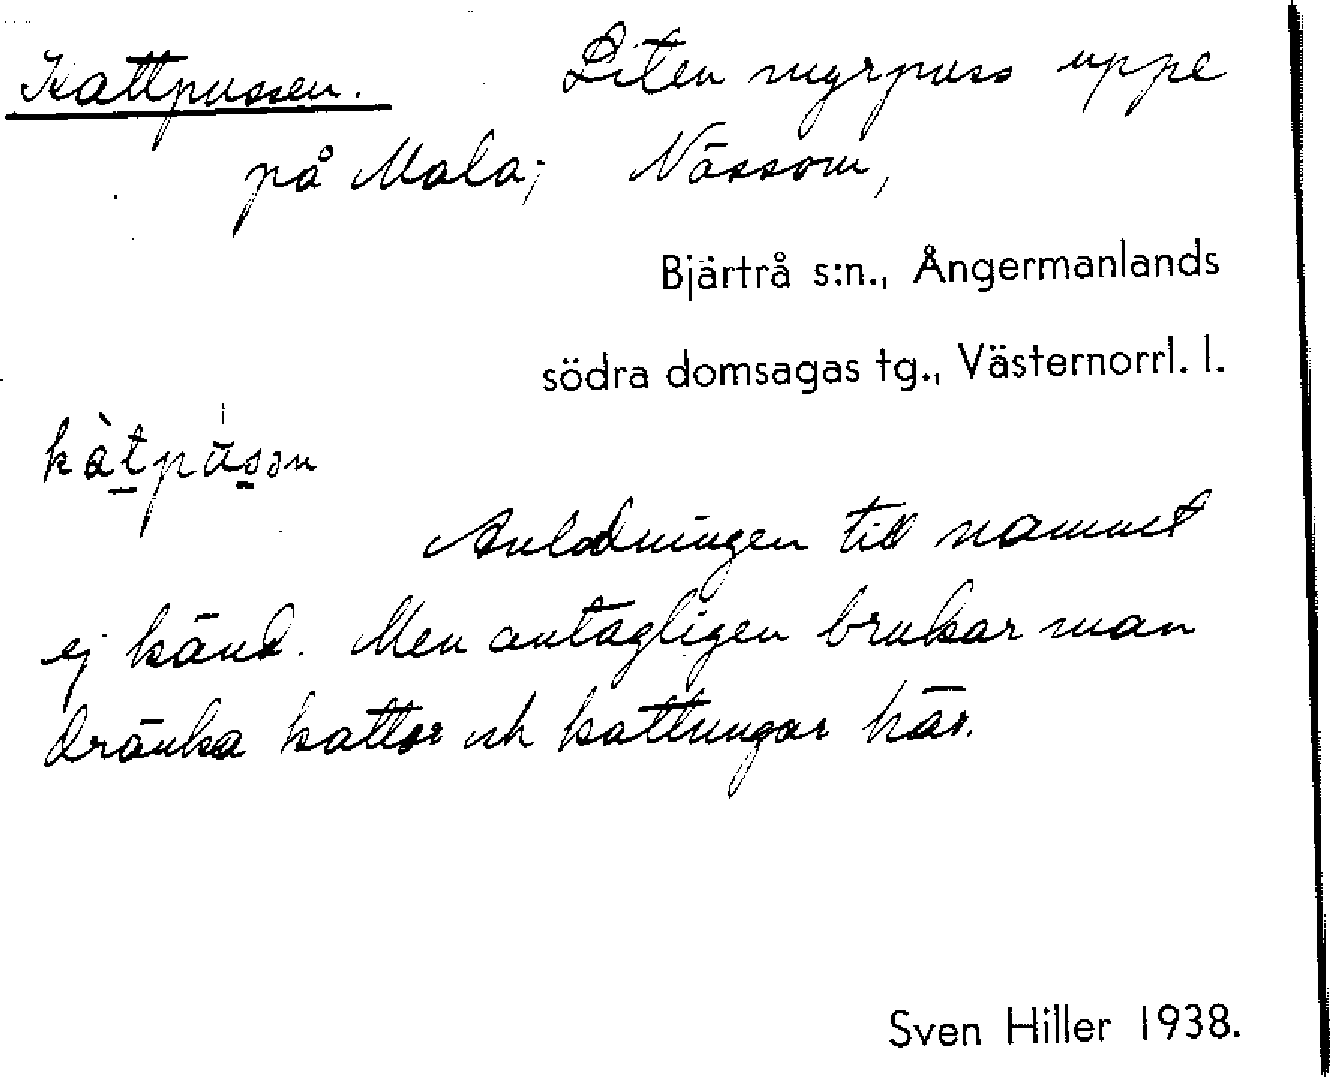 Kattpussen. Liten myrpuss uppe
på Mala; Nässom,
Bjärtrå s:n., Ångermanlands
södra domsagas tg., Västernorrl. l.
kàtpu̇sən
Anledningen till namnet
ej känd. Men antagligen brukar man
dränka kattor och kattungar här.
Sven Hiller 1938.